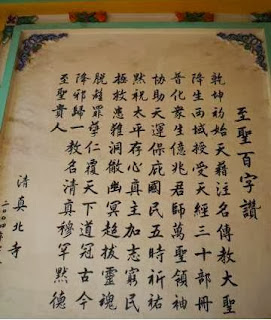 至聖百字讚
乾坤初始天藉注名傳教大聖
降生西域授受天經三十部冊
普化眾生億兆君師萬聖領袖
協助天運保庇國民五時祈祐
默祝太平存心真主加志窮民
拯救患難洞徹幽冥超拔靈魂
脫離罪業仁覆天下道冠古今
降邪歸一教名清真穆罕默德
至聖貴人
清真北寺
二〇〇四年